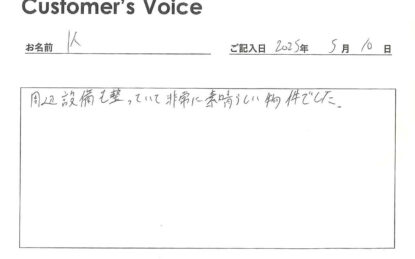 Customer's Voice
お名前 ご記入日 2025年 5月 10日
周辺設備も整っていて非常に素晴らしい物件でした。